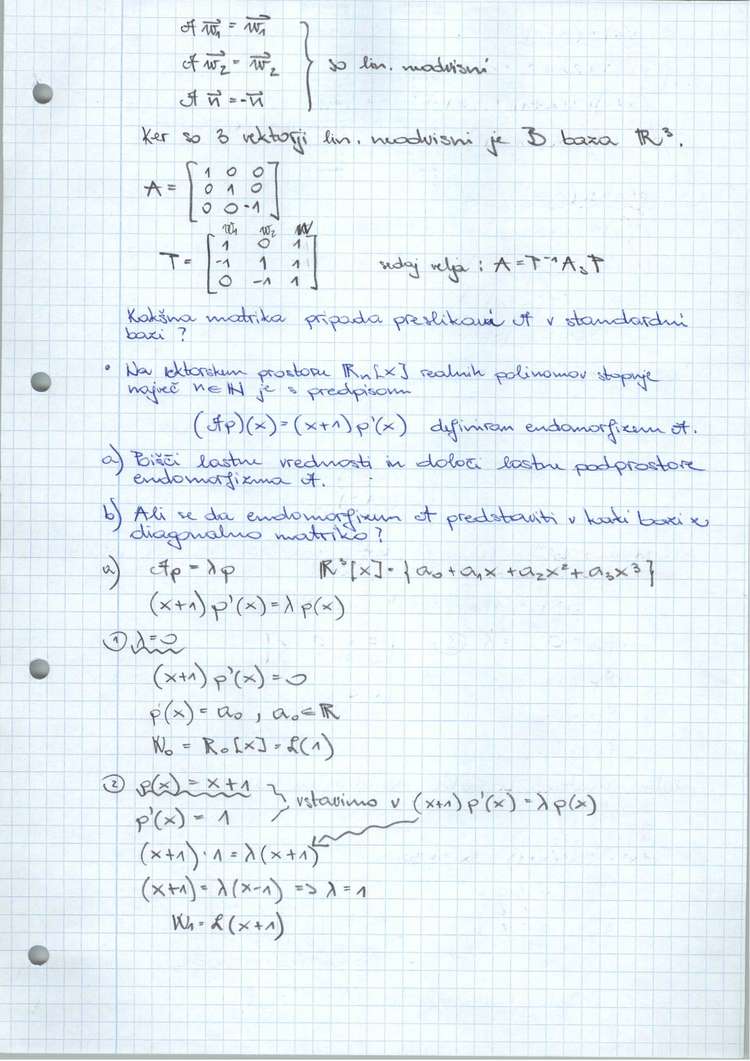 A w₁ = w₁
A w₂ = w₂ } so lin. neodvisni
A n = -n
Ker so 3 vektorji lin. neodvisni je B baza R³.
A = [1 0 0; 0 1 0; 0 0 -1]
w₁ w₂ n
T = [1 0 1; -1 1 1; 0 -1 1] sedaj velja : A = T⁻¹ A₃ T
Kakšna matrika pripada preslikavi A v standardni
bazi ?
• Na vektorskem prostoru Rₙ[x] realnih polinomov stopnje
največ n∈N je s predpisom
(Ap)(x) = (x+1) p'(x) definiran endomorfizem A.
a) Poišči lastne vrednosti in določi lastne podprostore
endomorfizma A.
b) Ali se da endomorfizem A predstaviti v kaki bazi z
diagonalno matriko?
a) Ap = λp R³[x] = {a₀ + a₁x + a₂x² + a₃x³}
(x+1) p'(x) = λ p(x)
① λ=0
(x+1) p'(x) = 0
p(x) = a₀ , a₀ ∈ R
W₀ = R₀[x] = L(1)
② p(x) = x+1
p'(x) = 1 } vstavimo v (x+1) p'(x) = λ p(x)
(x+1)·1 = λ(x+1)
(x+1) = λ(x-1) => λ = 1
W₁ = L(x+1)